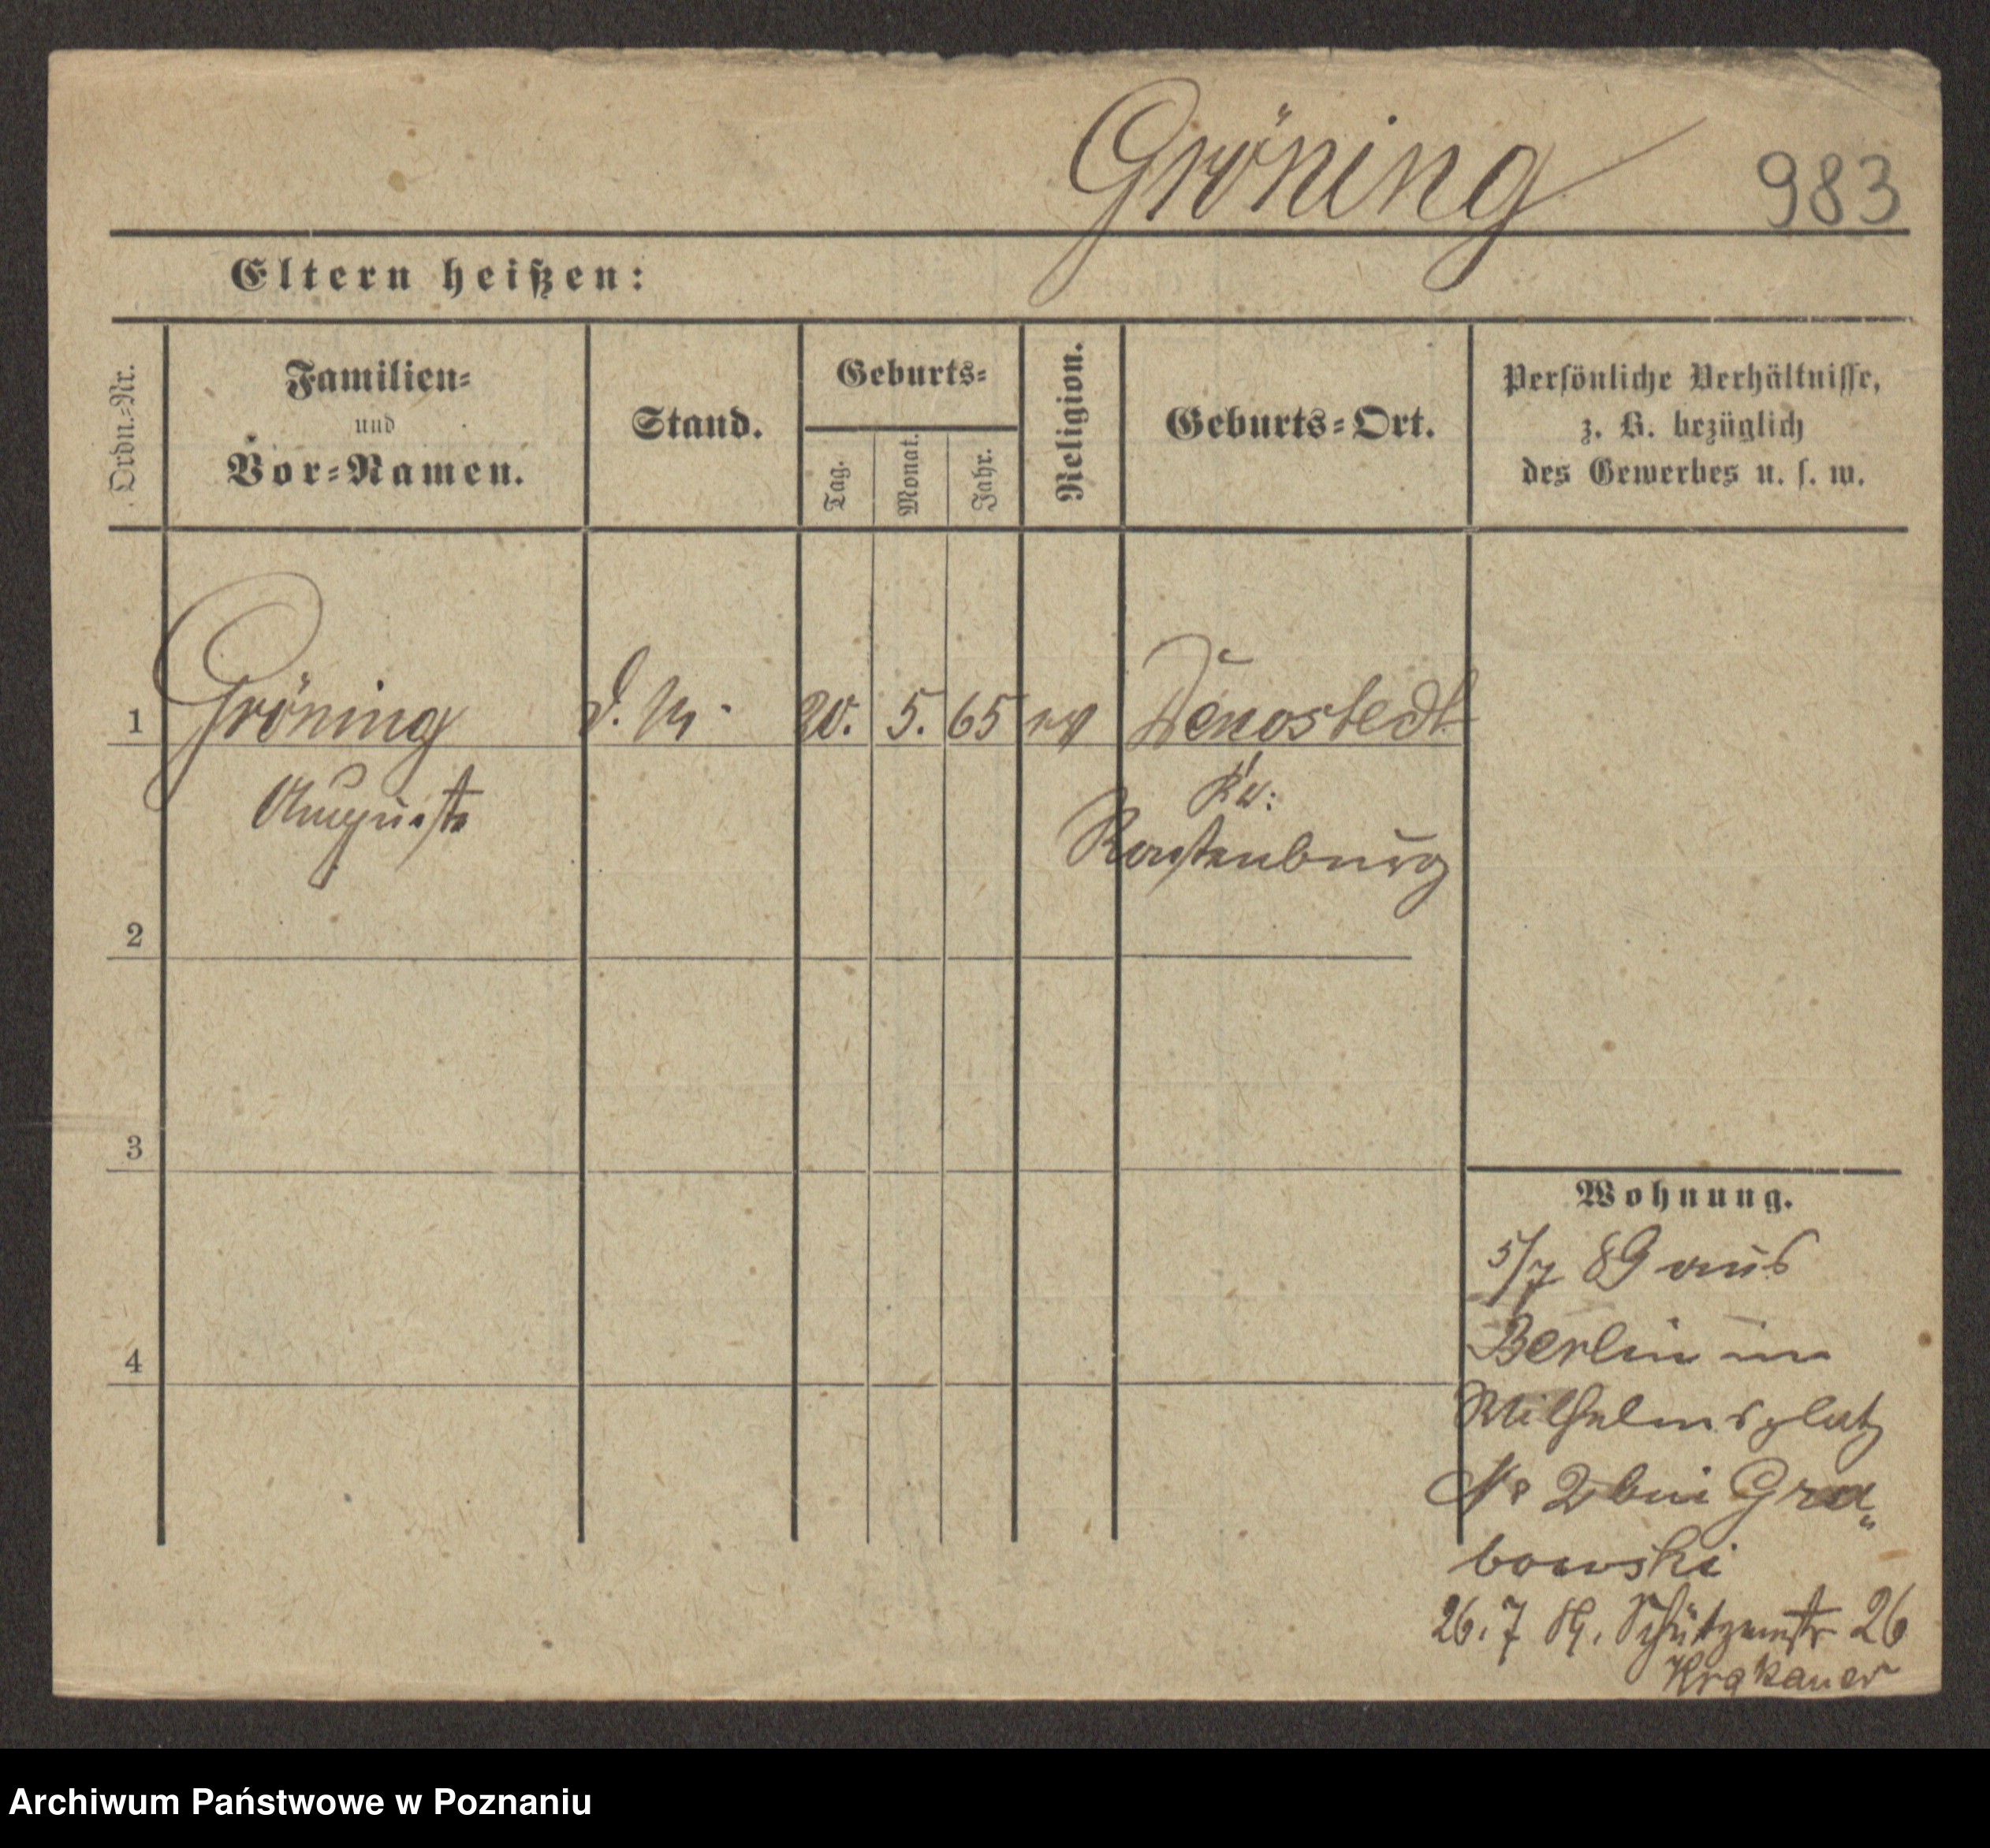 Gröning 983
Eltern heißen:
Ordn.-Nr.
Familien-
und
Vor-Namen.
Stand.
Geburts-
Tag.
Monat.
Jahr.
Religion.
Geburts-Ort.
Persönliche Verhältnisse,
z. B. bezüglich
des Gewerbes u. s. w.
1 Gröning D. M. 20. 5. 65 ev
Auguste
Kr:
Rastenburg
2
3
4
Wohnung.
5/7 89 aus
Berlin in
Wilhelmsplatz
No 2 bei Gra„
bowski
26. 7 89. Schützenstr 26
Krakauer
Archiwum Państwowe w Poznaniu